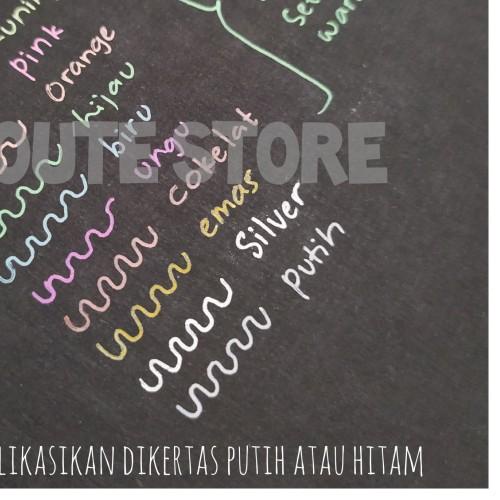 pink
Orange
hijau
biru
ungu
cokelat
emas
Silver
putih
OUTE STORE
LIKASIKAN DIKERTAS PUTIH ATAU HITAM